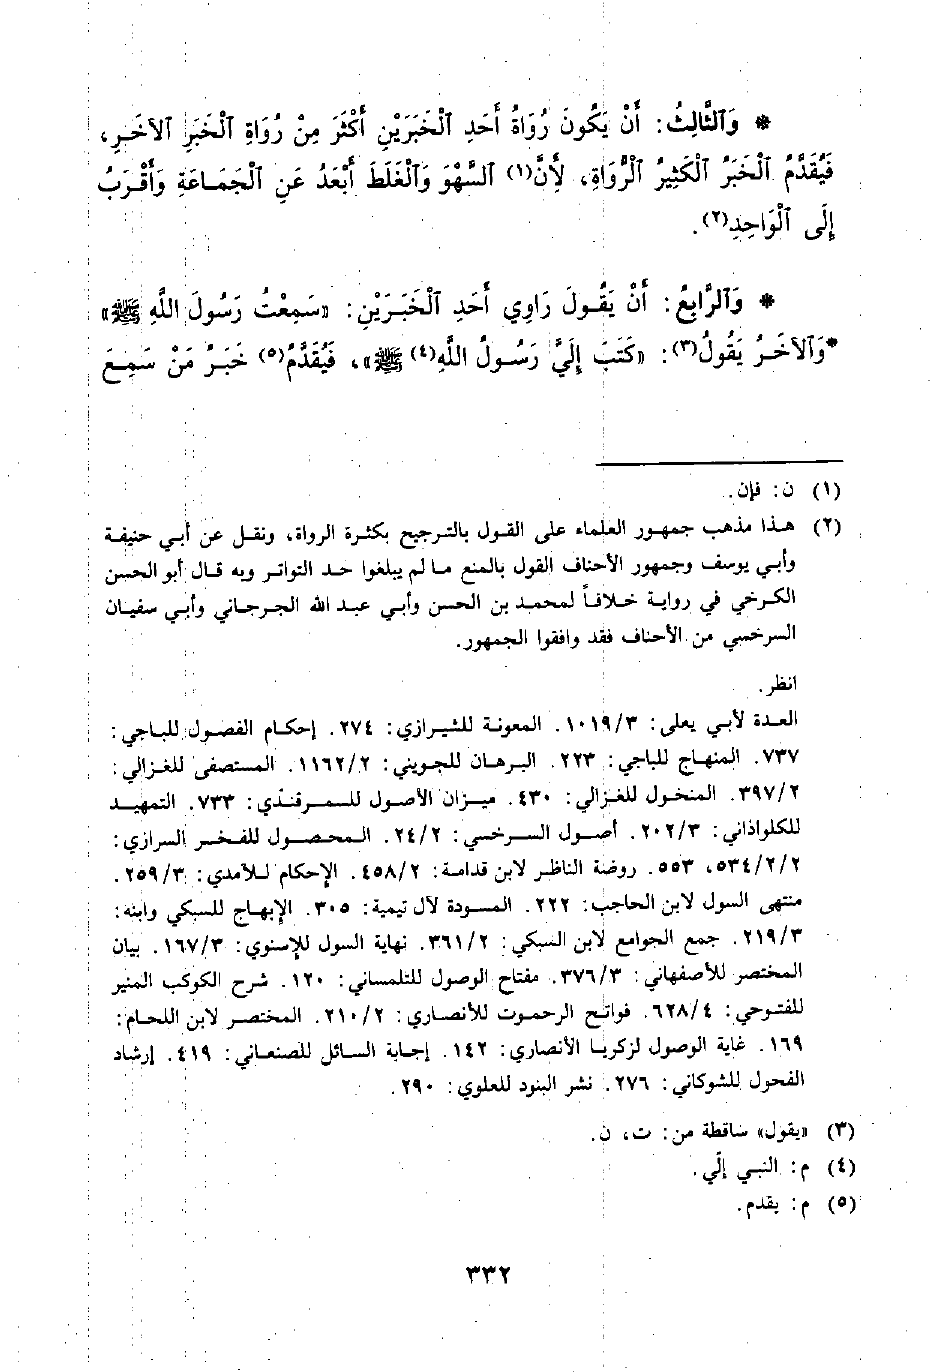 * وَٱلثَّالِثُ: أَنْ يَكُونَ رُوَاةُ أَحَدِ ٱلْخَبَرَيْنِ أَكْثَرَ مِنْ رُوَاةِ ٱلْخَبَرِ ٱلآخَرِ،
فَيُقَدَّمُ ٱلْخَبَرُ ٱلْكَثِيرُ ٱلرُّوَاةِ، لأَنَّ(١) ٱلسَّهْوَ وَٱلْغَلَطَ أَبْعَدُ عَنِ ٱلْجَمَاعَةِ وَأَقْرَبُ
إِلَى ٱلْوَاحِدِ(٢).
* وَٱلرَّابِعُ: أَنْ يَقُولَ رَاوِي أَحَدِ ٱلْخَبَرَيْنِ: «سَمِعْتُ رَسُولَ اللَّهِ ﷺ»
*وَٱلآخَرُ يَقُولُ(٣): «كَتَبَ إِلَيَّ رَسُولُ اللَّهِ(٤) ﷺ»، فَيُقَدَّمُ(٥) خَبَرُ مَنْ سَمِعَ
(١) ن: فإن.
(٢) هذا مذهب جمهور العلماء على القول بالترجيح بكثرة الرواة، ونقل عن أبي حنيفة
وأبي يوسف وجمهور الأحناف القول بالمنع ما لم يبلغوا حد التواتر وبه قال أبو الحسن
الكرخي في رواية خلافاً لمحمد بن الحسن وأبي عبد الله الجرجاني وأبي سفيان
السرخسي من الأحناف فقد وافقوا الجمهور.
انظر.
العدة لأبي يعلى: ١٠١٩/٣. المعونة للشيرازي: ٢٧٤. إحكام الفصول للباجي:
٧٣٧. المنهاج للباجي: ٢٢٣. البرهان للجويني: ١١٦٢/٢. المستصفى للغزالي:
٣٩٧/٢. المنخول للغزالي: ٤٣٠. ميزان الأصول للسمرقندي: ٧٣٣. التمهيد
للكلوذاني: ٢٠٢/٣. أصول السرخسي: ٢٤/٢. المحصول للفخر الرازي:
٥٣٤/٢/٢، ٥٥٣. روضة الناظر لابن قدامة: ٤٥٨/٢. الإحكام للآمدي: ٢٥٩/٣.
منتهى السول لابن الحاجب: ٢٢٢. المسودة لآل تيمية: ٣٠٥. الإبهاج للسبكي وابنه:
٢١٩/٣. جمع الجوامع لابن السبكي: ٣٦١/٢. نهاية السول للإسنوي: ١٦٧/٣. بيان
المختصر للأصفهاني: ٣٧٦/٣. مفتاح الوصول للتلمساني: ١٢٠. شرح الكوكب المنير
للفتوحي: ٦٢٨/٤. فواتح الرحموت للأنصاري: ٢١٠/٢. المختصر لابن اللحام:
١٦٩. غاية الوصول لزكريا الأنصاري: ١٤٢. إجابة السائل للصنعاني: ٤١٩. إرشاد
الفحول للشوكاني: ٢٧٦. نشر البنود للعلوي: ٢٩٠.
(٣) «يقول» ساقطة من: ت، ن.
(٤) م: النبي إلَي.
(٥) م: يقدم.
٣٣٢